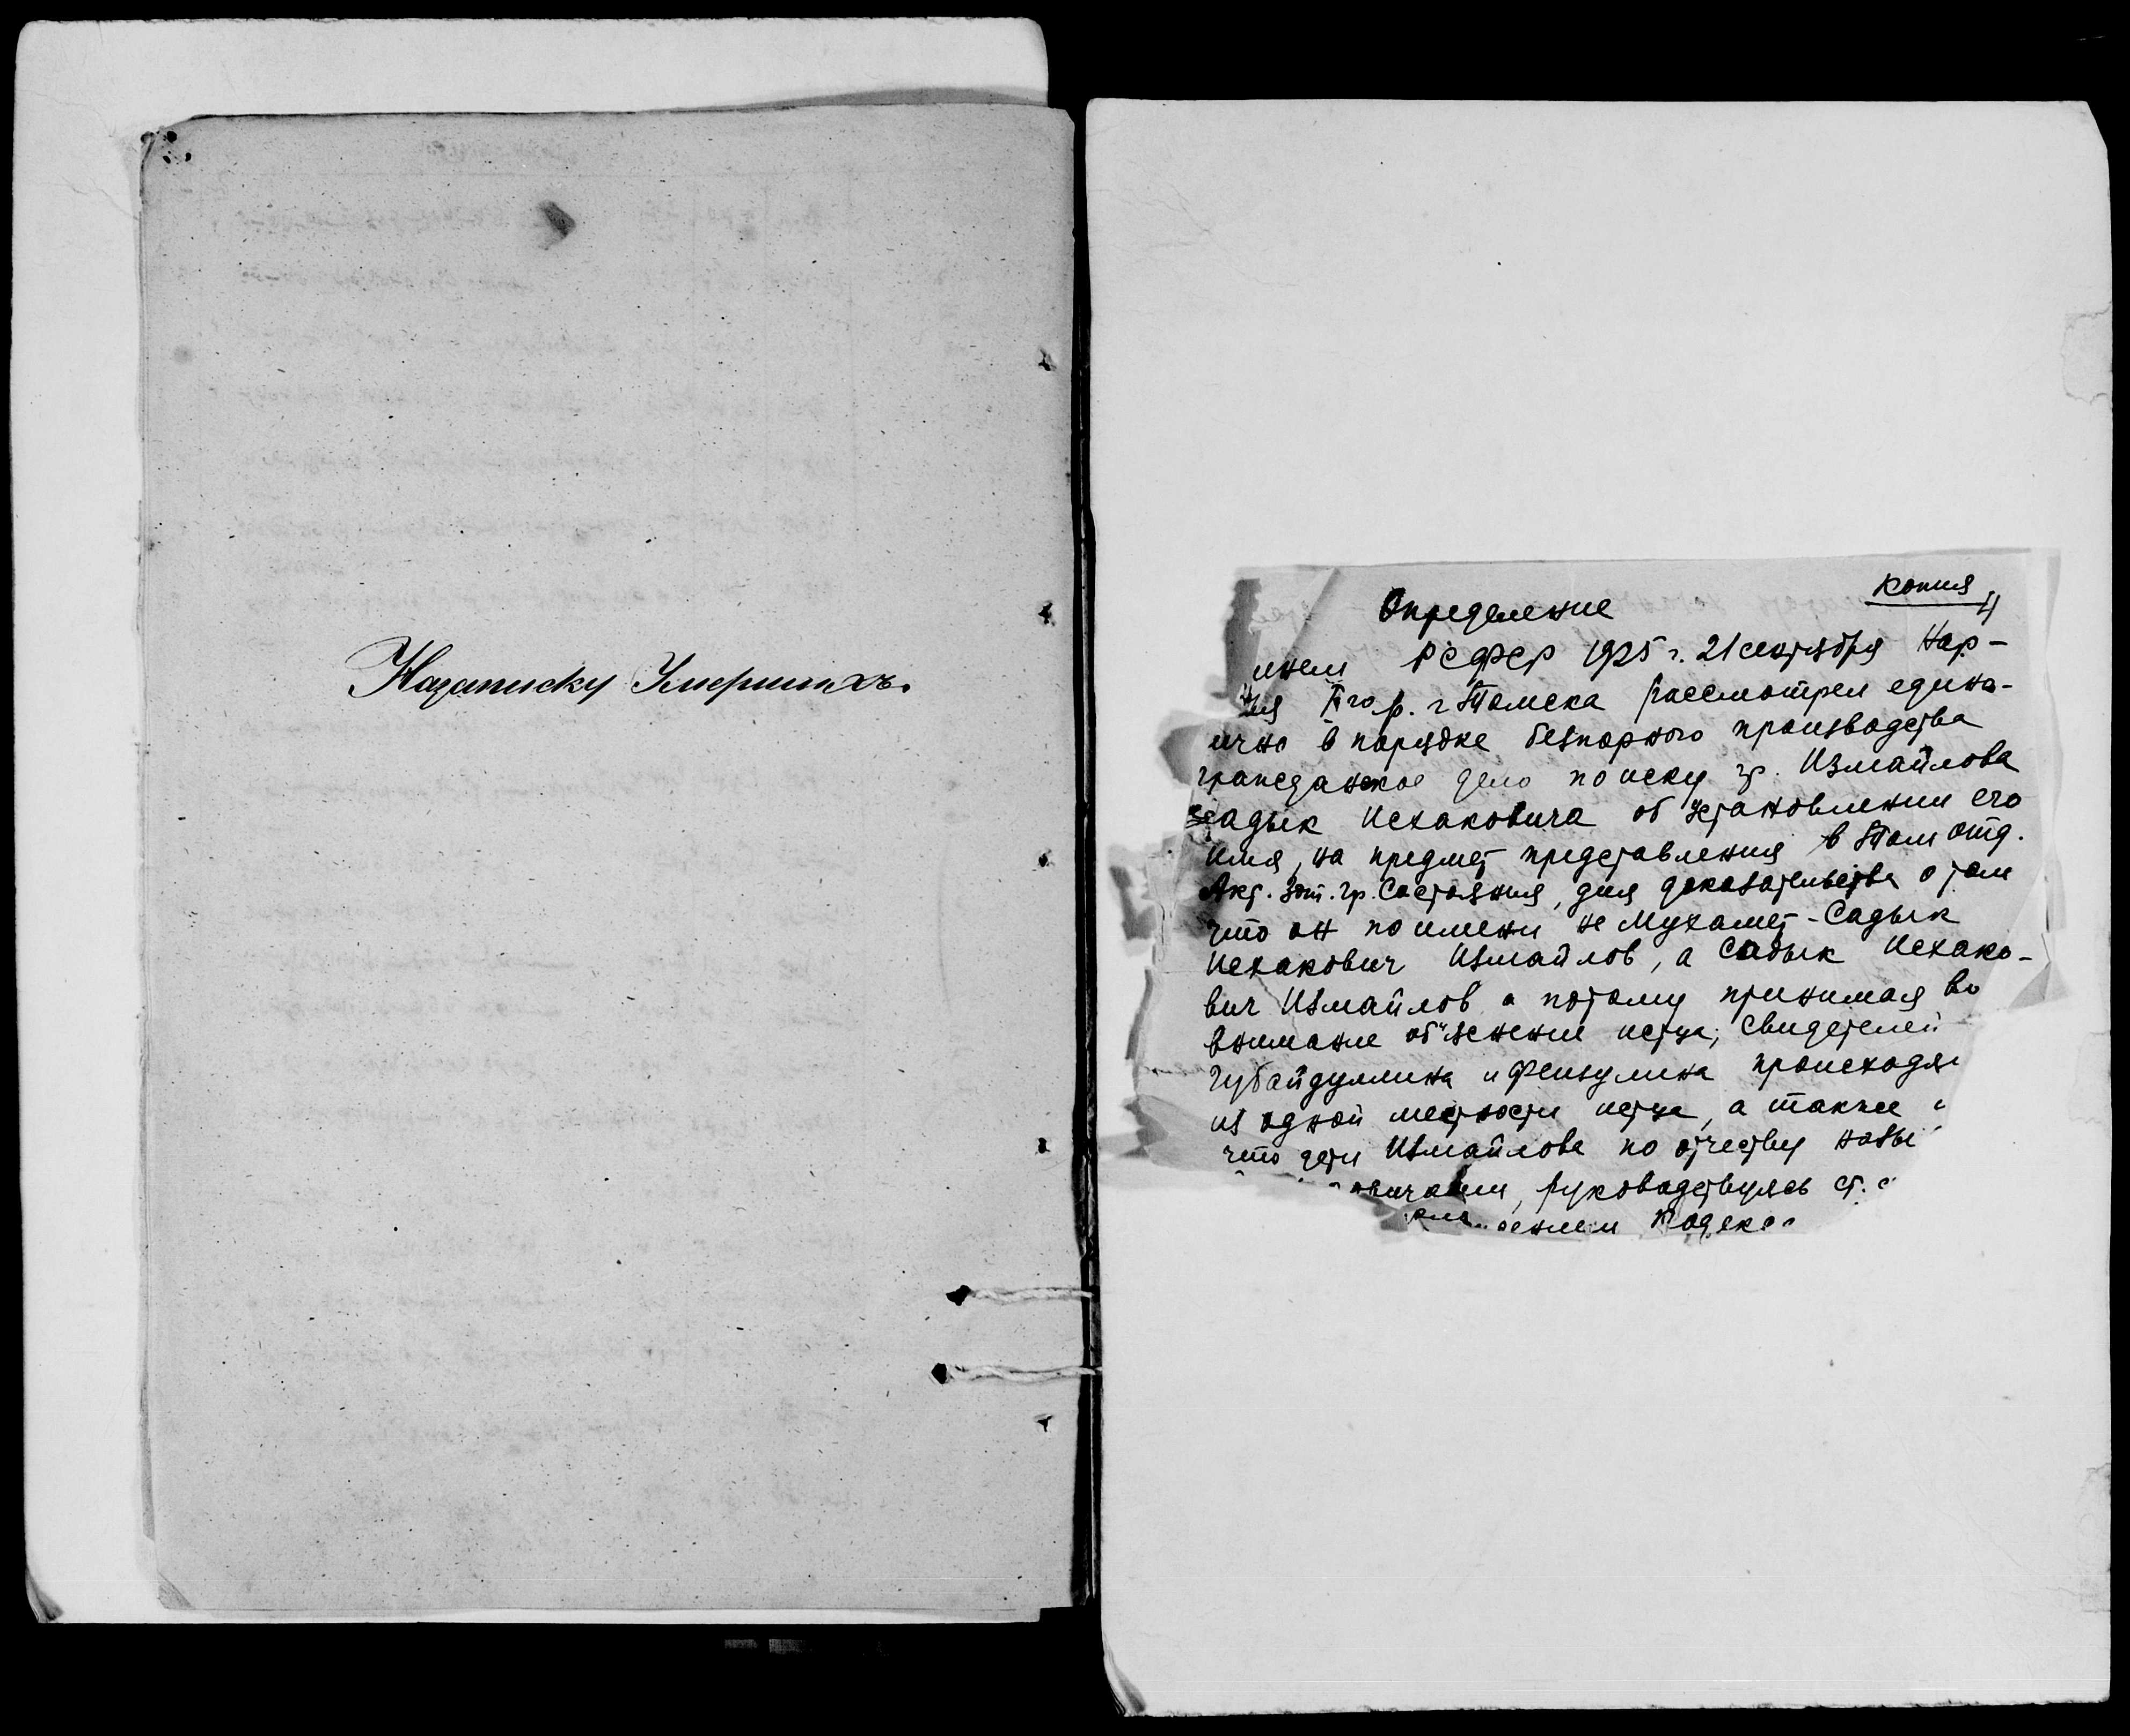 Назаписку Умершихъ.
Копия
Определение
именем РСФСР 1925 г. 21 сентября Нар-
гор. г. Томска рассмотрел едино-
ично в порядке безпорного производства
гражданское дело по иску гр. Измайлова
Садык Исхаковича об установлении его
имя, на предмет представления в Том отд.
Акт. Зап. гр. Состояния, для доказательства о том
что он по имени не Мухамет-Садык
Исхакович Измайлов, а Садык Исхако-
вич Измайлов а потому принимая во
внимание об'яснение истца, свидетелей
Губайдуллина и Фейзулина происходя
из одной местности истца, а также
что дети Измайлова по отчеству назы
овичами, руководствуясь ст.
Кодекса